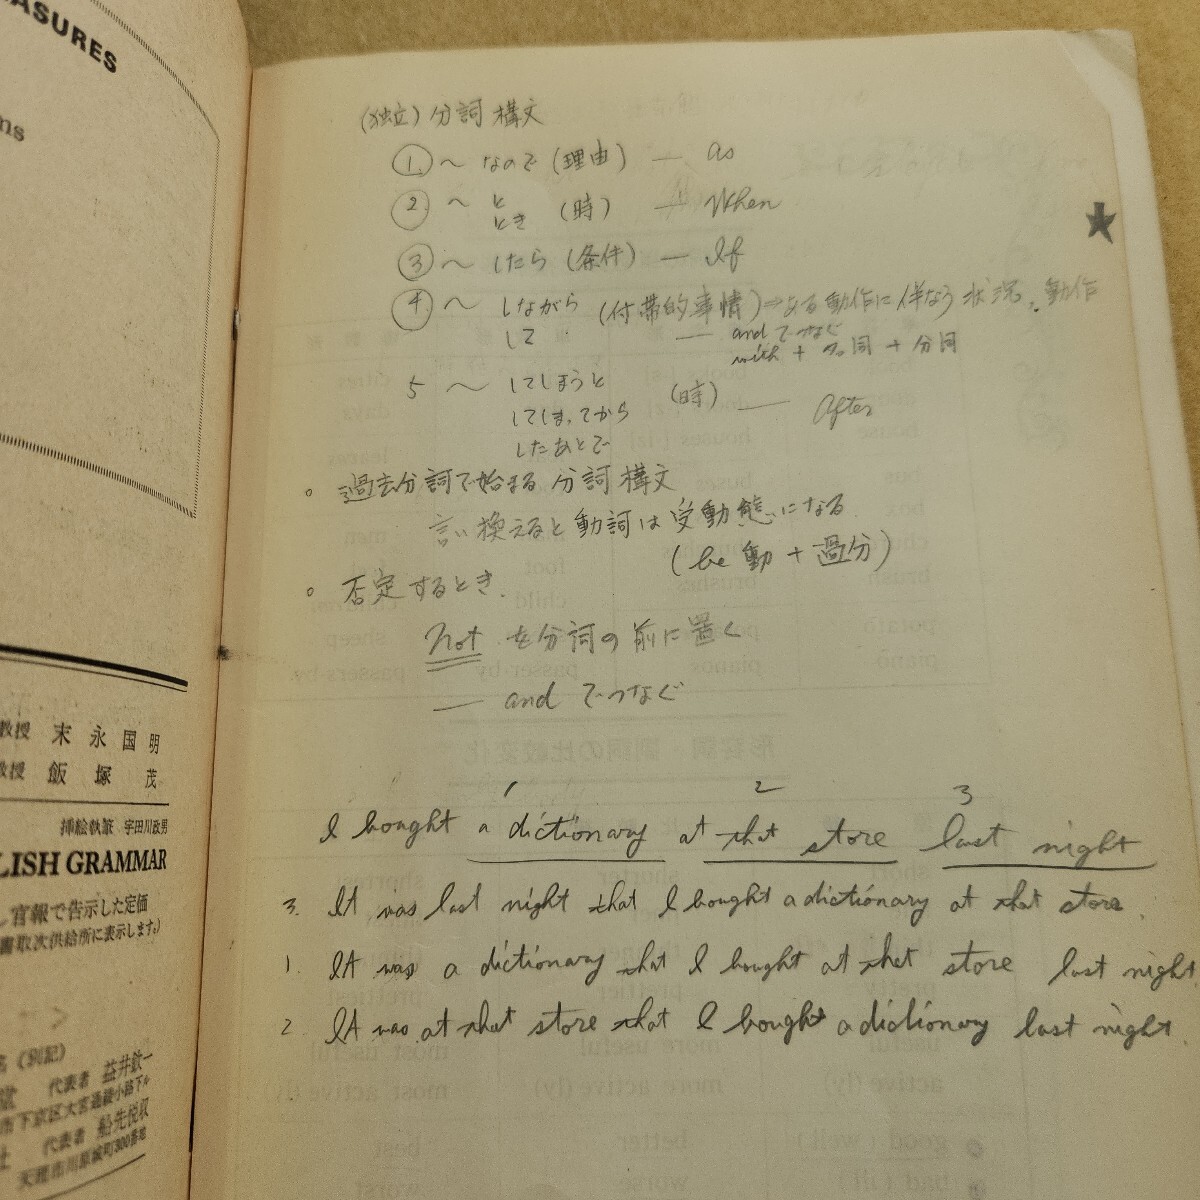 ASURES
ns
教授 末永国明
教授 飯塚 茂
挿絵執筆 宇田川政男
LISH GRAMMAR
し官報で告示した定価
書取次供給所に表示します。)
名 (別記)
堂 代表者 益井欽一
市下京区大宮通綾小路下ル
社 代表者 船先悦収
天理市川原城町300番地
(独立) 分詞構文
① ~ なので (理由) — as
② ~ と
とき (時) — When
③ ~ したら (条件) — If
④ ~ しながら (付帯的事情) ⇒ ある動作に伴なう状況、動作
して — and でつなぐ
with + 名詞 + 分詞
5 ~ してしまうと (時) — After
してしまってから
したあとで
○ 過去分詞で始まる 分詞構文
言い換えると動詞は受動態になる
(be 動 + 過分)
○ 否定するとき.
Not を分詞の前に置く
— and でつなぐ
1 2 3
I bought a dictionary at that store last night
3. It was last night that I bought a dictionary at that store.
1. It was a dictionary that I bought at that store last night.
2. It was at that store that I bought a dictionary last night.